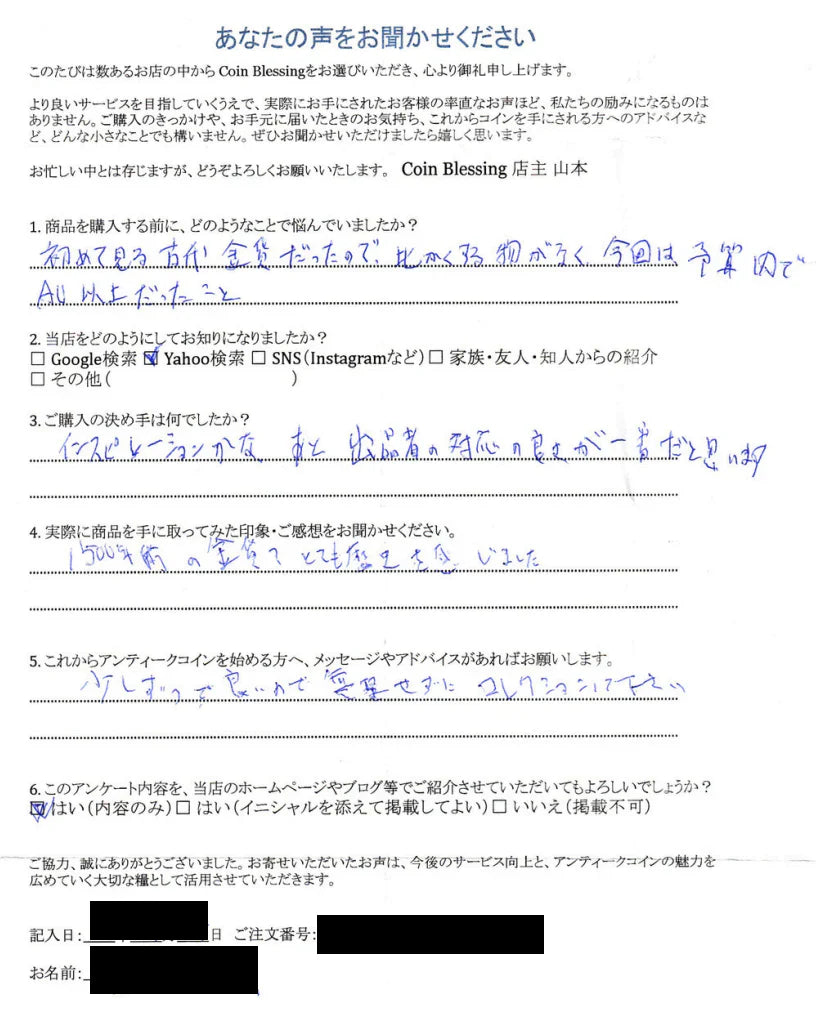 あなたの声をお聞かせください
このたびは数あるお店の中から Coin Blessingをお選びいただき、心より御礼申し上げます。
より良いサービスを目指していくうえで、実際にお手にされたお客様の率直なお声ほど、私たちの励みになるものは
ありません。ご購入のきっかけや、お手元に届いたときのお気持ち、これからコインを手にされる方へのアドバイスな
ど、どんな小さなことでも構いません。ぜひお聞かせいただけましたら嬉しく思います。
お忙しい中とは存じますが、どうぞよろしくお願いいたします。 Coin Blessing 店主 山本
1. 商品を購入する前に、どのようなことで悩んでいましたか？
初めて見る古代金貨だったので、比かくする物がなく 今回は予算内で
AU以上だったこと
2. 当店をどのようにしてお知りになりましたか？
☐ Google検索 ☑ Yahoo検索 ☐ SNS（Instagramなど）☐ 家族・友人・知人からの紹介
☐ その他（ ）
3. ご購入の決め手は何でしたか？
インスピレーションかな あと 出品者の対応の良さが一番だと思います
4. 実際に商品を手に取ってみた印象・ご感想をお聞かせください。
1500年前の金貨でとても歴史を感じました
5. これからアンティークコインを始める方へ、メッセージやアドバイスがあればお願いします。
少しずつで良いので無理せずに コレクションして下さい
6. このアンケート内容を、当店のホームページやブログ等でご紹介させていただいてもよろしいでしょうか？
☑はい（内容のみ）☐ はい（イニシャルを添えて掲載してよい）☐ いいえ（掲載不可）
ご協力、誠にありがとうございました。お寄せいただいたお声は、今後のサービス向上と、アンティークコインの魅力を
広めていく大切な糧として活用させていただきます。
記入日： 日 ご注文番号：
お名前：